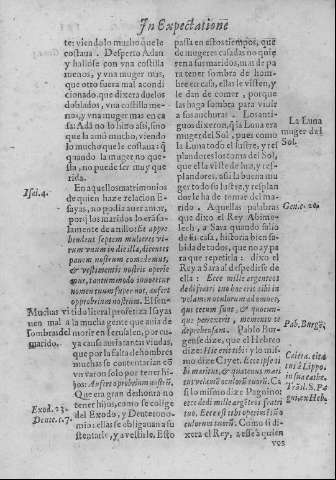 In Expectatione
te: viendo lo mucho que le
costaua. Desperto Adan
y hallose con vna costilla
menos, y vna muger mas,
que otro fuera mal acondi
cionado que dixera duelos
doblados, vna costilla me
nos, y vna muger mas en ca
sa: Adā no lo hizo assi, sino
que la amò mucho, viendo
lo mucho que le costaua: q̄
quando la muger no que
sta, no puede ser muy que
rida.
En aquellos matrimonios
de quien haze relacion E-
sayas, no podia auer amor,
porq̄ los maridos lo eran sola
mente de anillo: Et appre
hendent septem mulieres vi-
rum vnum in die illa, dicentes
panem nostrum comedemus,
& vestimentis nostris operie
mur, tantummodo inuocetur
nomen tuum super nos, aufert
opprobrium nostrum. El sen-
tido literal profetiza Isayas
la mucha gente que auia de
morir en Ierusalen, por cu
ya causa auria tantas viudas,
que por la falta de hombres
muchas se contentarian cō
vn varon solo por tener hi-
jos: Aufert opprobrium nostrū,
Que era gran deshonra no
tener hijos, como se colige
del Exodo, y Deuterono-
mio: ellas se obligauan a su
stentarle, y a vestirle. Esto
Isai. 4.
Muchas vi
nen mal a
sombra del
marido.
Exod. 23.
Deute. c. 7.
passa en estos tiempos, que
ay mugeres casadas no quie
ren a sus maridos, mas de pa
ra tener sombra de hom-
bre en casa, ellas le visten, y
le dan de comer, porque
las haga sombra para viuir
a sus anchuras. Los anti-
guos dixeron, q̄ la Luna era
muger del Sol, pues como
la Luna todo el lustre, y res
plandor le viene del Sol,
que el la viste de luz, y res-
plandores, assi la buena mu
ger todo su lustre, y resplan
dor le ha de tomar del ma-
rido. Aquellas palabras
que dixo el Rey Abime-
lech, a Sara quando salio
de su casa, historia bien sa-
bida de todos, que no ay pa
ra que repetirla: dixo el
Rey a Sara al despedirse de
ella: Ecce mille argenteos
dedi fratri tuo hoc erit tibi in
velamen oculorum ad omnes,
qui tecum sunt, & quocum-
que perrexeris, memento te
deprehensam. Pablo Bur-
gense dize, que el Hebreo
dize: Hic erit tibi: y lo mis-
mo dize Cayet. Ecce ipse ti
bi maritus, & quatenus mari
tus velamē oculorū tuorū. Ca
si lo mismo dize Pagnino:
ecce dedi mille argēteos fratri
tuo. Ecce est tibi operimētū o
culorum tuorū. Como si di-
xera el Rey, a esse à quien
vos
La Luna
muger del
Sol.
Gene. 20.
Pab. Burgē.